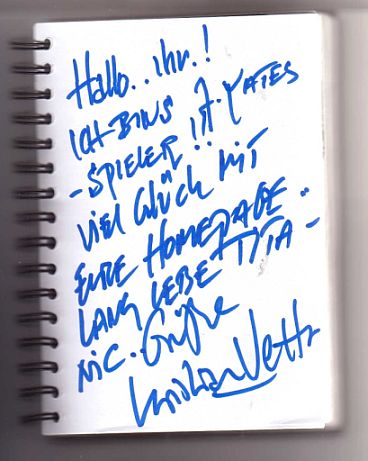 Hallo..ihr.!
ICH-BINS
-SPIELER!! A. YATES
VIEL GLÜCK MIT
EURE HOMEPAGE..
LANG LEBE TITA-
NIC. Grüße